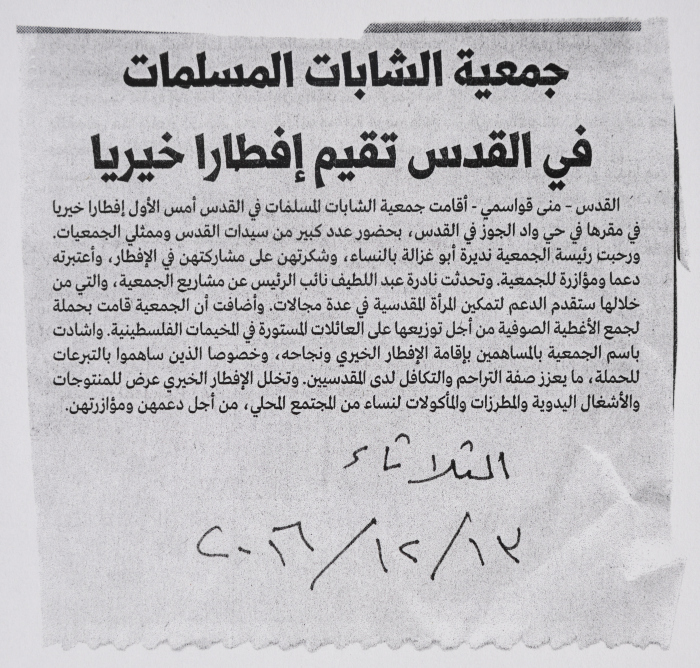 جمعية الشابات المسلمات
في القدس تقيم إفطارا خيريا
القدس - منى قواسمي - أقامت جمعية الشابات المسلمات في القدس أمس الأول إفطارا خيريا
في مقرها في حي واد الجوز في القدس، بحضور عدد كبير من سيدات القدس وممثلي الجمعيات.
ورحبت رئيسة الجمعية نديرة أبو غزالة بالنساء، وشكرتهن على مشاركتهن في الإفطار، وأعتبرته
دعما ومؤازرة للجمعية. وتحدثت نادرة عبد اللطيف نائب الرئيس عن مشاريع الجمعية، والتي من
خلالها ستقدم الدعم لتمكين المرأة المقدسية في عدة مجالات. وأضافت أن الجمعية قامت بحملة
لجمع الأغطية الصوفية من أجل توزيعها على العائلات المستورة في المخيمات الفلسطينية. واشادت
باسم الجمعية بالمساهمين بإقامة الإفطار الخيري ونجاحه، وخصوصا الذين ساهموا بالتبرعات
للحملة، ما يعزز صفة التراحم والتكافل لدى المقدسيين. وتخلل الإفطار الخيري عرض للمنتوجات
والأشغال اليدوية والمطرزات والمأكولات لنساء من المجتمع المحلي، من أجل دعمهن ومؤازرتهن.
الثلاثاء
١٣/١٢/٢٠١٦